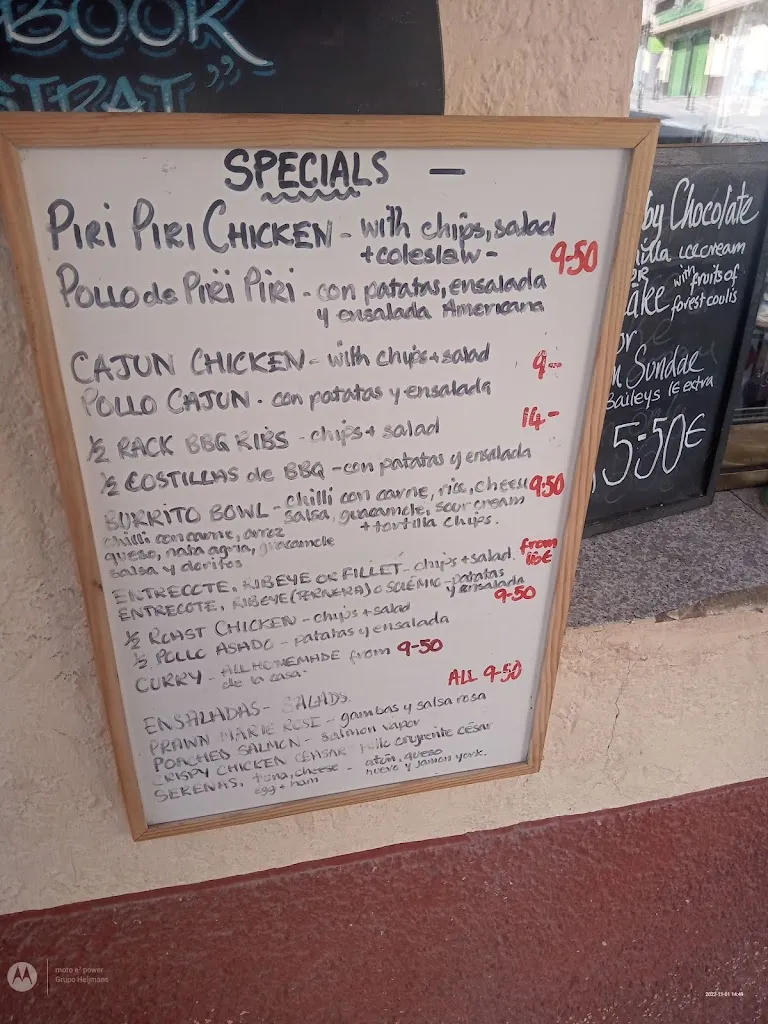 BOOK
SPECIALS —
PIRI PIRI CHICKEN - with chips, salad
+ coleslaw - 9-50
POLLO de PIRI PIRI - con patatas, ensalada
y ensalada Americana
CAJUN CHICKEN - with chips + salad 9-
POLLO CAJUN - con patatas y ensalada
½ RACK BBQ RIBS - chips + salad 14-
½ COSTILLAS de BBQ - con patatas y ensalada
BURRITO BOWL - chilli con carne, rice, cheese 9-50
salsa, guacamole, sour cream
+ tortilla chips.
chilli con carne, arroz
queso, nata agria, guacamole
salsa y doritos
ENTRECOTE, RIBEYE OR FILLET - chips + salad. from
16€
ENTRECOTE, RIBEYE (TERNERA) O SOLEMIO - patatas
y ensalada
½ ROAST CHICKEN - chips + salad 9-50
½ POLLO ASADO - patatas y ensalada
CURRY - ALL HOMEMADE from 9-50
de la casa
ENSALADAS - SALADS. ALL 9-50
PRAWN MARIE ROSE - gambas y salsa rosa
POACHED SALMON - salmon vapor
CRISPY CHICKEN CEASAR Pollo crujiente césar
SERENAS, tuna, cheese - atún, queso
egg + ham huevo y jamon york.
by Chocolate
icecream
OR with fruits of
forest coulis
or
Sundae
Baileys 1€ extra
5:50€
moto e⁷ power
Grupo Heijmans
2022-11-01 14:49